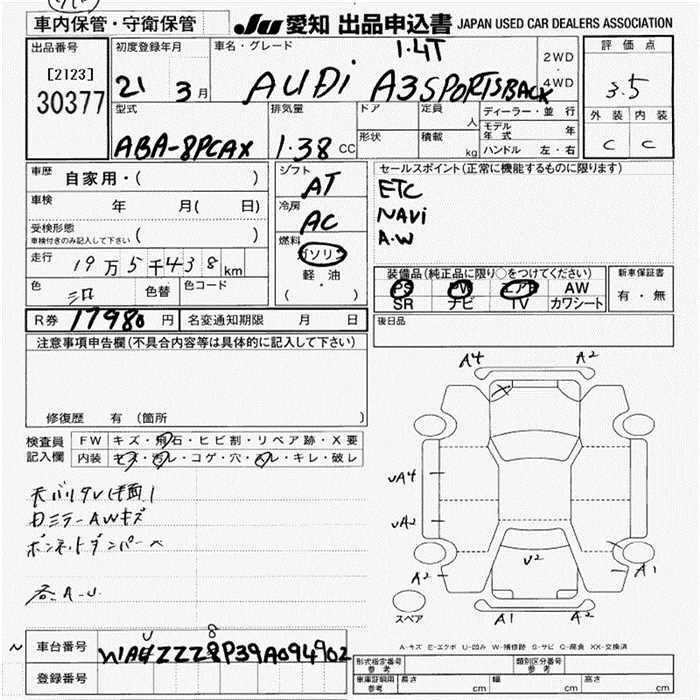 車内保管・守衛保管
JU 愛知 出品申込書 JAPAN USED CAR DEALERS ASSOCIATION
出品番号
[2123]
30377
初度登録年月
21 3 月
車名・グレード
1.4T
AUDi A3SPORTSBACK
2WD
4WD
評価点
3.5
外装 内装
C C
型式
ABA-8PCAX
排気量
1.38 CC
ドア
形状
定員
人
積載
kg
ディーラー・並行
モデル年式 年
ハンドル 左・右
車歴 自家用・( )
車検 年 月( 日)
受検形態
車検付きのみ記入して下さい ( )
走行 19万5千438km
色 色替 色コード
シフト
AT
冷房
AC
燃料
ガソリン
軽・油
( )
セールスポイント(正常に機能するものに限ります)
ETC
NAVi
A.W
装備品(純正品に限り○をつけてください)
PS PW エアB AW
SR ナビ TV カワシート
新車保証書
有・無
R券 17980 円 名変通知期限 月 日
後日品
注意事項申告欄(不具合内容等は具体的に記入して下さい)
修復歴 有 (箇所 )
検査員記入欄
FW キズ・飛石・ヒビ割・リペア跡・X要
内装 キズ・汚レ・コゲ・穴・スレ・キレ・破レ
ドミラーAWキズ
ボンネットダンパー
各A.U
A4 A2
UA4
UA2
A2
U2
A1
A1 A2
スペア
A-キズ E-エクボ U-凹み W-補修跡 S-サビ C-腐食 XX-交換済
車台番号 WAUZZZ8P39A094902
登録番号
形式指定番号 参考
類別区分番号 参考
車庫証明用 参考
長さ cm
幅 cm
高さ cm